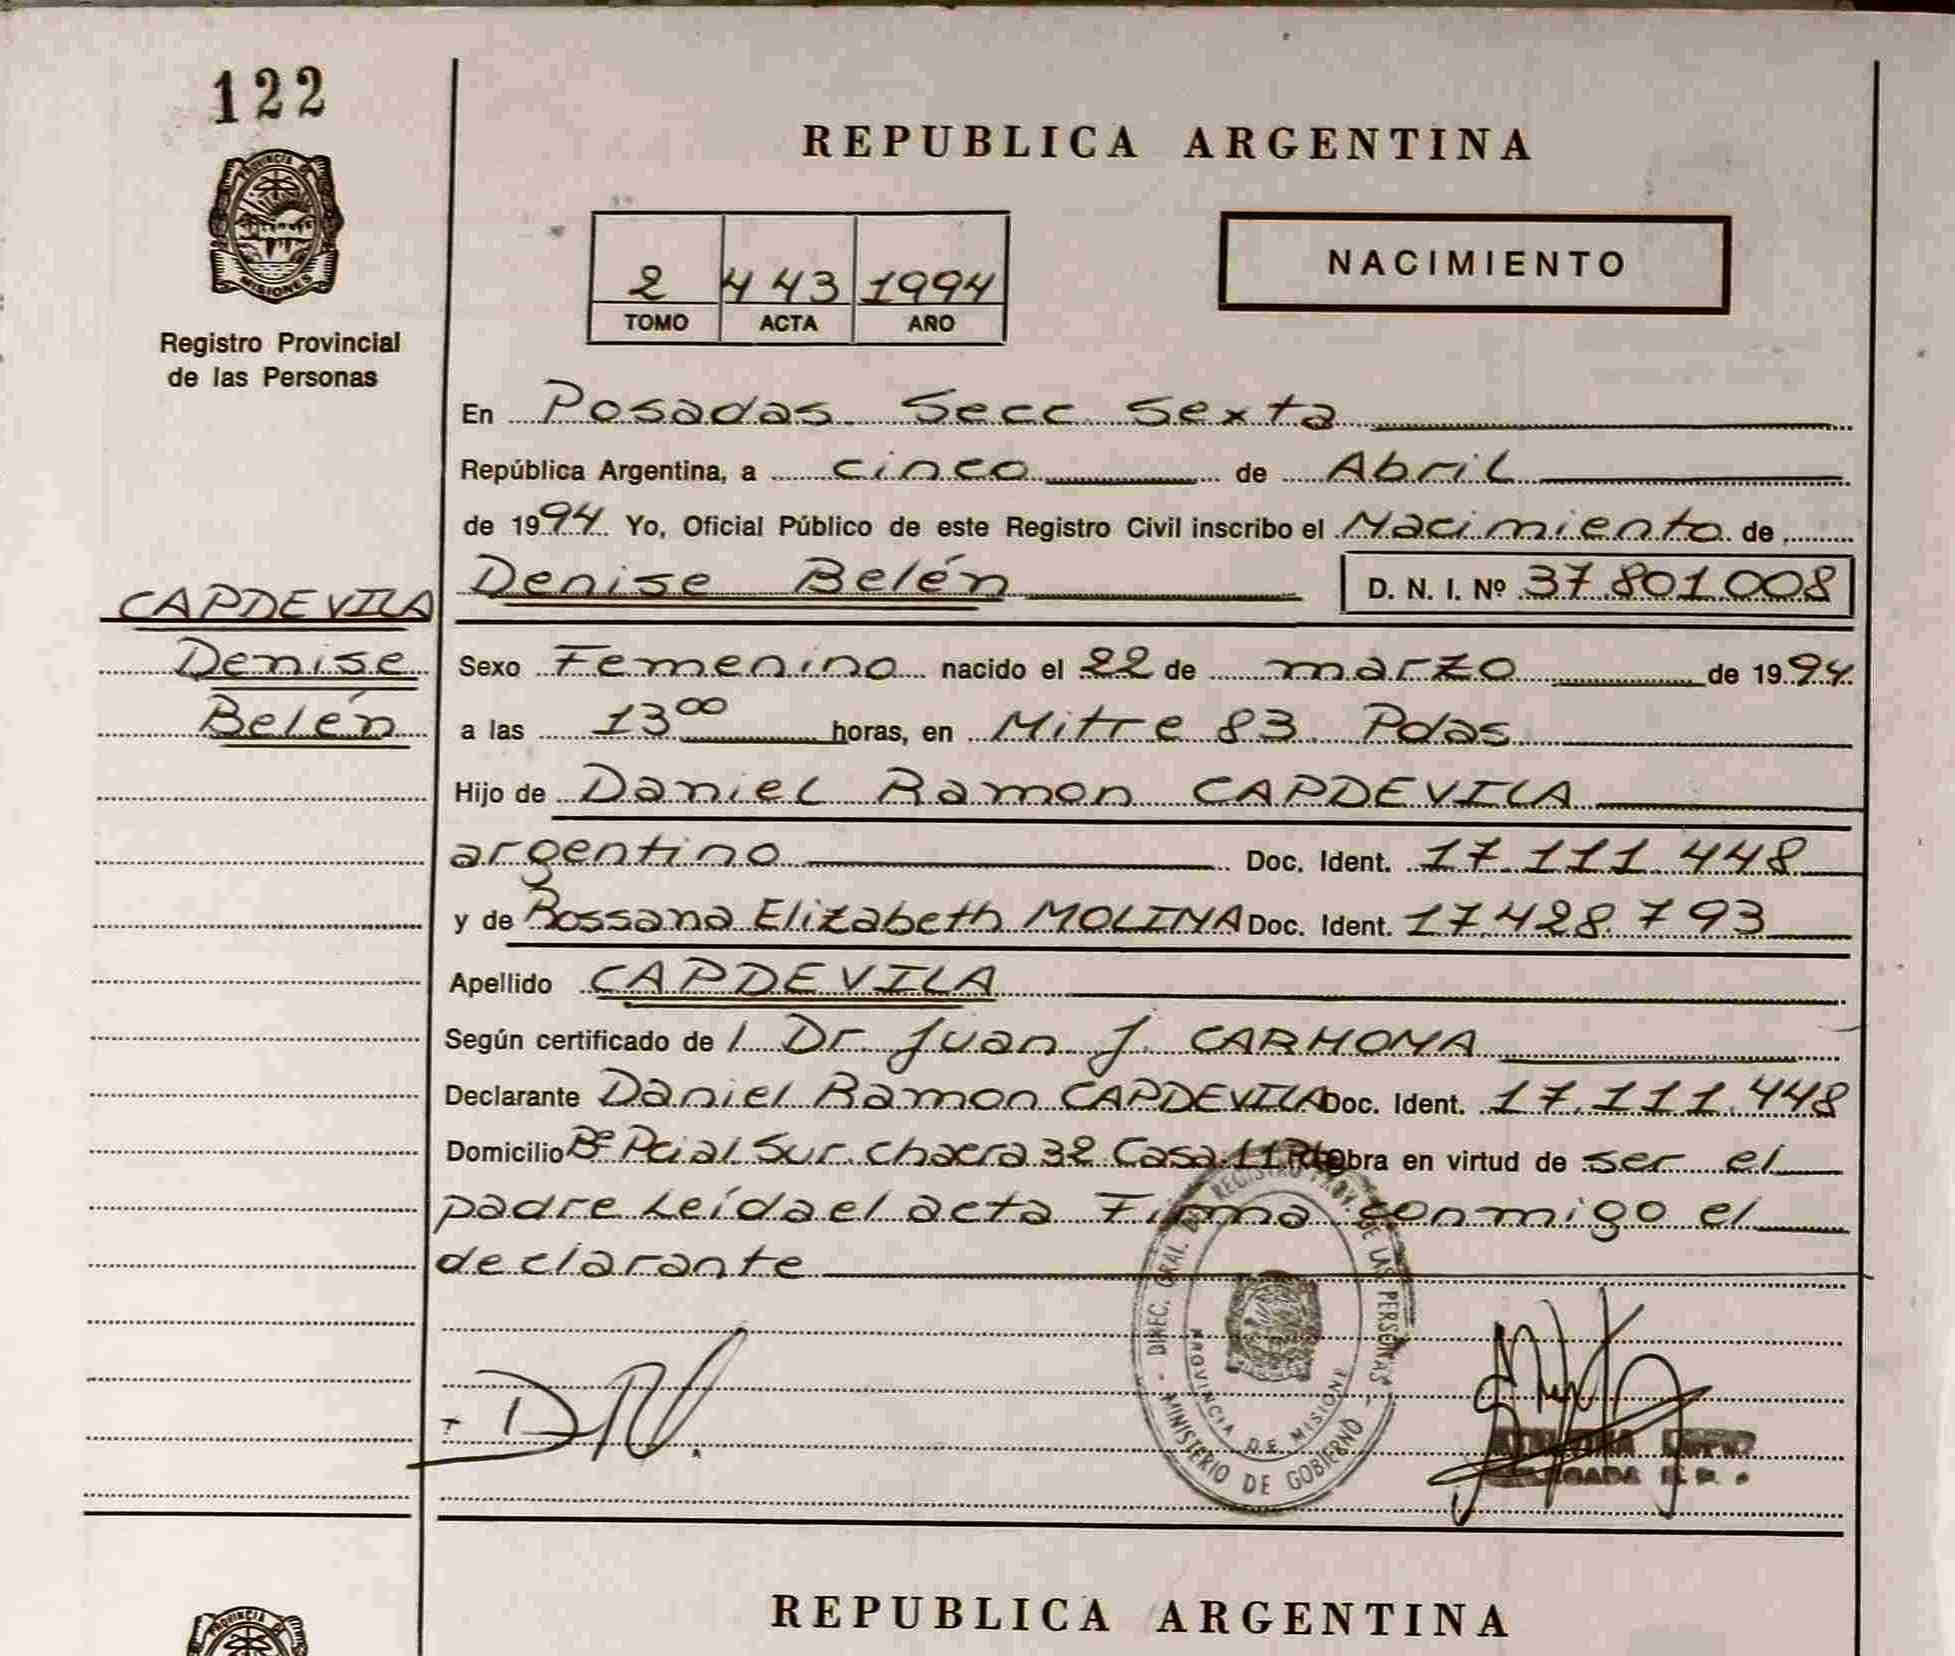 122
PROVINCIA
MISIONES
Registro Provincial
de las Personas
REPUBLICA ARGENTINA
2 443 1994
TOMO ACTA AÑO
NACIMIENTO
En Posadas Secc Sexta
República Argentina, a cinco de Abril
de 1994 Yo, Oficial Público de este Registro Civil inscribo el Nacimiento de
Denise Belén D. N. I. Nº 37.801.008
CAPDEVILA
Denise
Belén
Sexo Femenino nacido el 22 de marzo de 1994
a las 13 00 horas, en Mitre 83 Pdas
Hijo de Daniel Ramon CAPDEVILA
argentino Doc. Ident. 17.111.448
y de Rossana Elizabeth MOLINA Doc. Ident. 17.428.793
Apellido CAPDEVILA
Según certificado de l Dr. Juan J. CARMONA
Declarante Daniel Ramon CAPDEVILA Doc. Ident. 17.111.448
Domicilio Bº Pcial Sur. chacra 32 Casa 11 Obra en virtud de ser el
padre Leída el acta Firma conmigo el
declarante
DIREC. GRAL. DEL REGISTRO PROV. DE LAS PERSONAS
MINISTERIO DE GOBIERNO
PROVINCIA DE MISIONES
REPUBLICA ARGENTINA
PROVINCIA